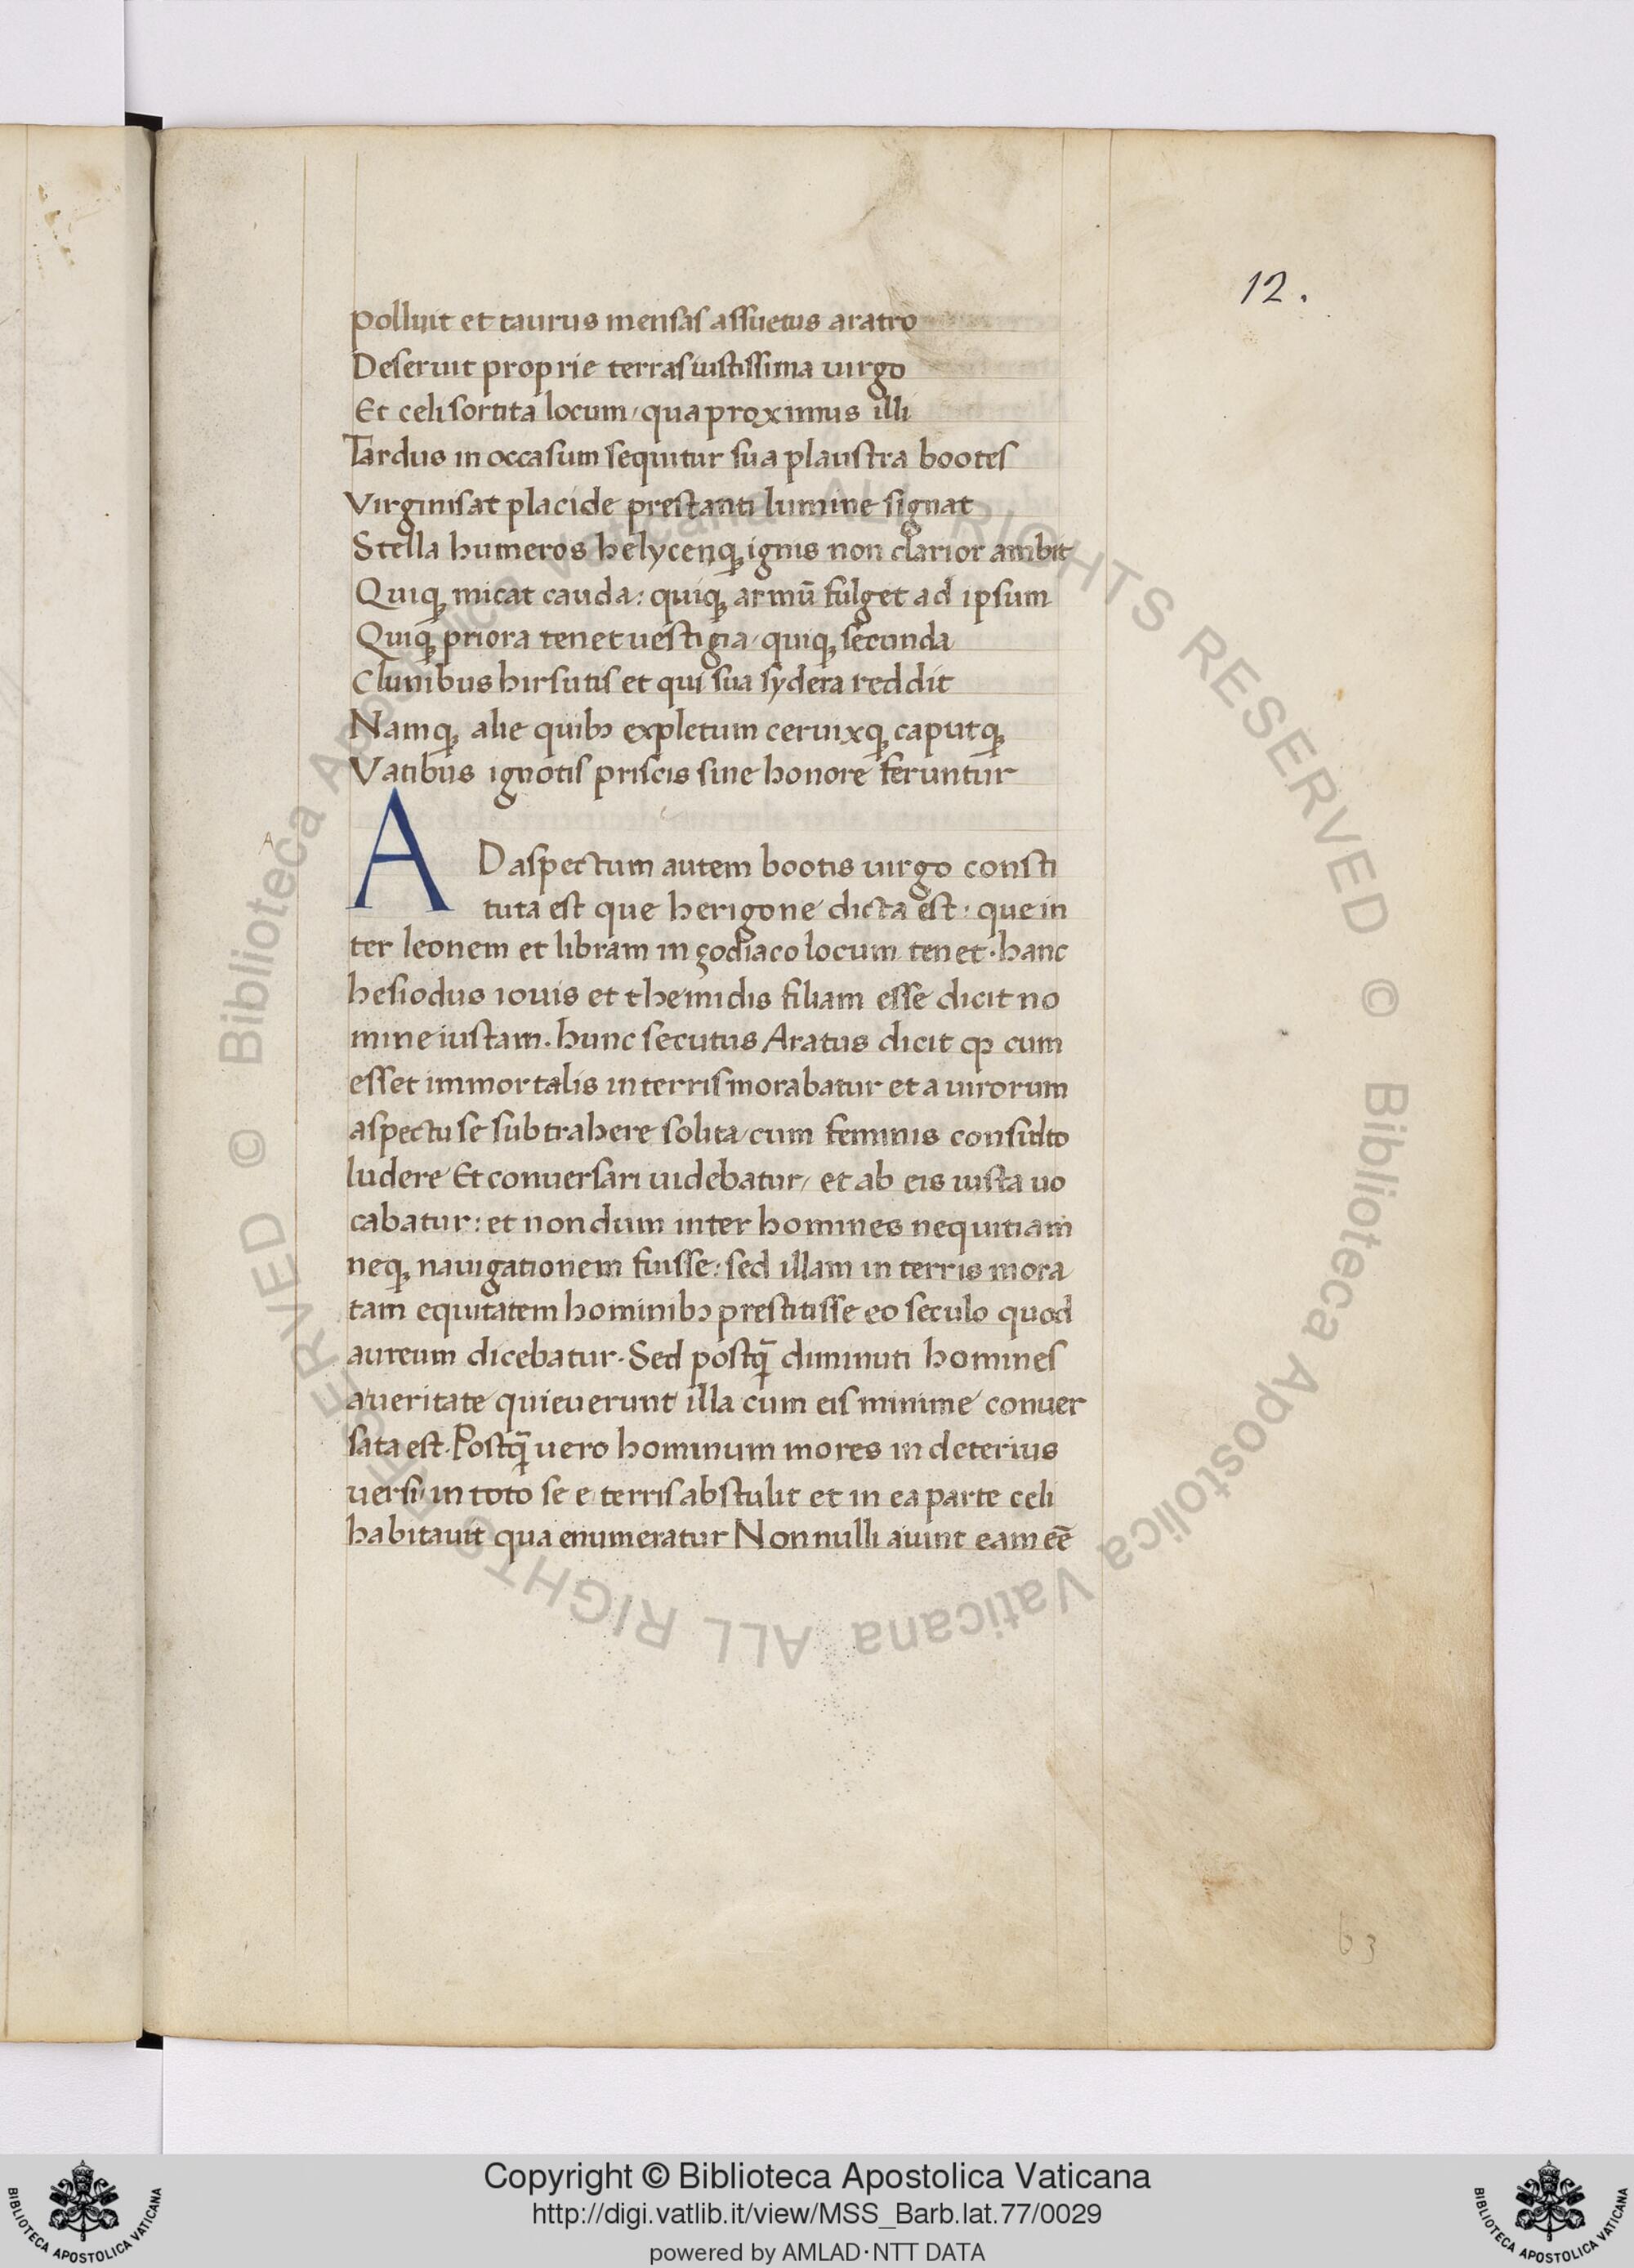 12.
polluit et taurus mensas assuetus aratro
Deseruit proprie terras iustissima uirgo
Et celi sortita locum / qua proximus illi
Tardus in occasum sequitur sua plaustra bootes
Virginis at placide prestanti lumine signat
Stella humeros helycenqꝫ ignis non clarior ambit
Quiqꝫ micat cauda: quiqꝫ armū fulget ad ipsum
Quiqꝫ priora tenet uestigia / quiqꝫ secunda
Clunibus hirsutis et qui sua sydera reddit
Namqꝫ alie quibꝫ expletum ceruixqꝫ caputqꝫ
Vatibus ignotis priscis sine honore feruntur
A
AD aspectum autem bootis uirgo consti
tuta est que herigone dicta est: que in
ter leonem et libram in zodiaco locum tenet. hanc
hesiodus iouis et themidis filiam esse dicit no
mine iustam. hunc secutus Aratus dicit ꝙ cum
esset immortalis in terris morabatur et a uirorum
aspectu se subtrahere solita / cum feminis consulto
ludere Et conuersari uidebatur / et ab eis iusta uo
cabatur: et nondum inter homines nequitiam
neqꝫ nauigationem fuisse: sed illam in terris mora
tam equitatem hominibꝫ prestitisse eo seculo quod
aureum dicebatur. Sed postq̄ diminuti homines
a ueritate quieuerunt illa cum eis minime conuer
sata est. Postq̄ uero hominum mores in deterius
uersi / in toto se e terris abstulit et in ea parte celi
habitauit qua enumeratur Non nulli aiunt eam eē
b 3
Copyright © Biblioteca Apostolica Vaticana
http://digi.vatlib.it/view/MSS_Barb.lat.77/0029
powered by AMLAD·NTT DATA
BIBLIOTECA APOSTOLICA VATICANA
BIBLIOTECA APOSTOLICA VATICANA
© Biblioteca Apostolica Vaticana ALL RIGHTS RESERVED © Biblioteca Apostolica Vaticana ALL RIGHTS RESERVED